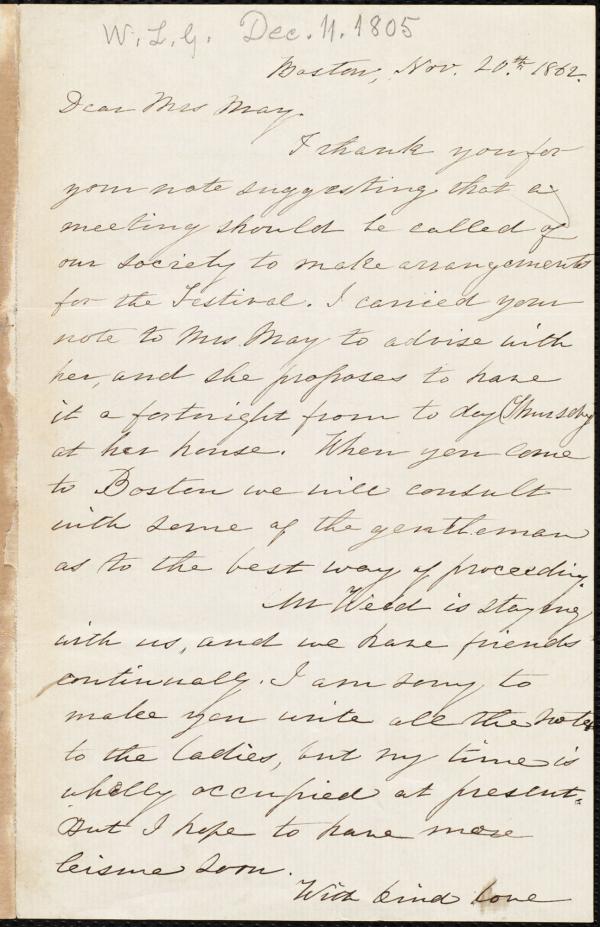 W. L. G. Dec. 11. 1805
Boston, Nov. 20.th 1862.
Dear Mrs May.
I thank you for
your note suggesting that a
meeting should be called of
our society to make arrangements
for the Festival. I carried your
note to Mrs May to advise with
her, and she proposes to have
it a fortnight from to day (Thursday)
at her house. When you come
to Boston we will consult
with some of the gentleman
as to the best way of proceeding.
Mr Weld is staying
with us, and we have friends
continually. I am sorry to
make you write all the notes
to the ladies, but my time is
wholly occupied at present.
But I hope to have more
leisure soon.
With kind love